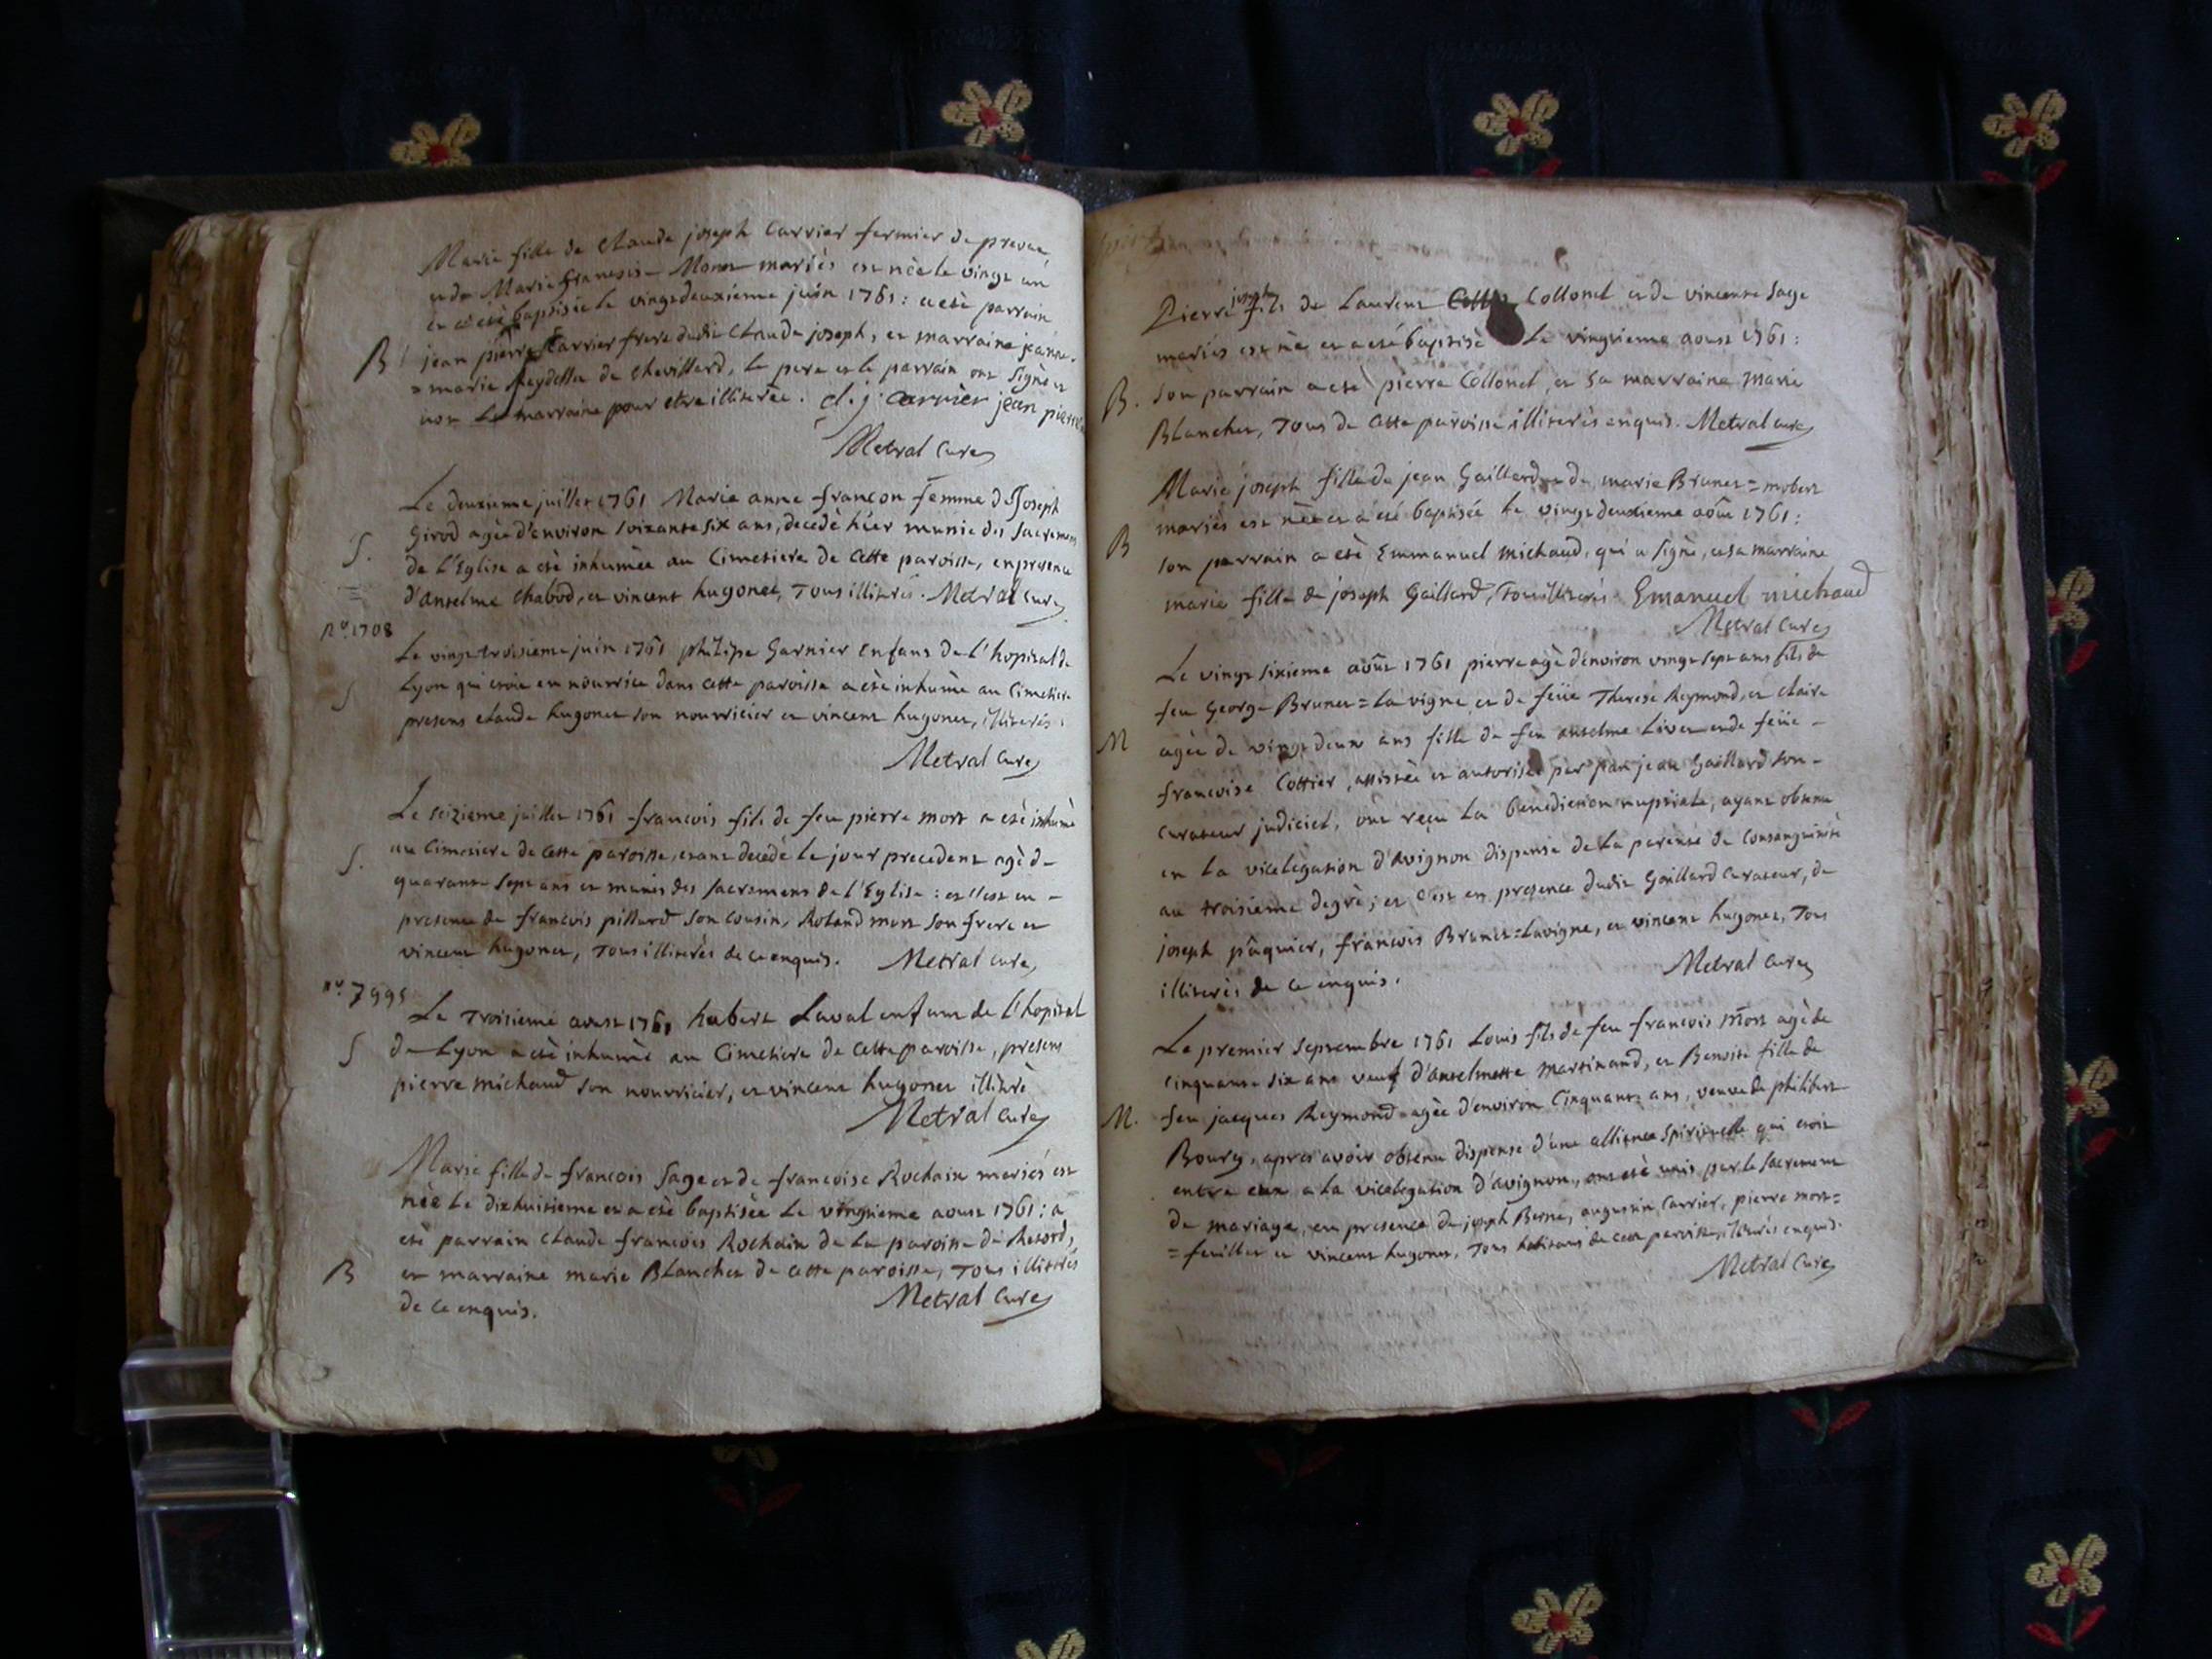 Marie fille de Claude joseph Carrier fermier de
et de Marie francoise Monet mariés est née le vingt un
et a eté baptisée le vingt deuxieme juin 1761 : a eté parrain
B jean pierre Carrier frere dudit Claude joseph, et marraine jeanne
= marie de Chevillard, le pere et le parrain ont signé et
non la marraine pour etre illiterée. cl. j. carrier jean pierre
Metral Curé
Le deuxieme juillet 1761 Marie anne françon femme de Joseph
Girod agée d'environ soixante six ans, decedé hier munie des sacremens
S. de l'Eglise a eté inhumée au Cimetiere de cette paroisse, en presence
d'antelme Chabod, et vincent hugonet, Tous illiterés. Metral Curé
n.º 1708
Le vingt troisieme juin 1761 philipe Garnier enfant de l'hopital de
S Lyon qui etoit en nourrice dans cette paroisse a eté inhumé au Cimetiere
presens claude hugonet son nourricier et vincent hugonet, illiterés.
Metral Curé
Le seizieme juillet 1761 francois fils de feu pierre mort a eté inhumé
au Cimetiere de cette paroisse, etant decedé le jour precedent agé de
S. quarante sept ans et munis des sacremens de l'Eglise : et c'est en -
presence de francois pillard son cousin, Roland mort son frere et
vincent hugonet, Tous illiterés de ce enquis. Metral Curé
n.º 7995
Le Troisieme aoust 1761 hubert Laval enfant de l'hopital
S de Lyon a eté inhumé au Cimetiere de cette paroisse, presens
pierre michaud son nourricier, et vincent hugonet illitéré
Metral Curé
Marie fille de francois Sage et de francoise Rochaix mariés est
née le dixhuitieme et a eté baptisée le vingtieme aoust 1761 : a
eté parrain claude francois Rochaix de la paroisse de Retord,
B et marraine marie Blanchet de cette paroisse, Tous illiterés
de ce enquis. Metral Curé
joseph
Pierre fils de Laurent Collonet et de vincente Sage
mariés est né et a eté baptisé le vingtieme aoust 1761 :
B. son parrain a eté pierre Collonet, et sa marraine marie
Blanchet, Tous de cette paroisse illiterés enquis. Metral Curé
Marie joseph fille de jean Gaillard et de marie Brunet = mobert
mariés est née et a eté baptisée le vingt deuxieme aoûst 1761 :
B son parrain a eté Emmanuel michaud, qui a signé, et sa marraine
marie fille de joseph Gaillard, Emanuel michaud
Metral Curé
Le vingt sixieme aoûst 1761 pierre agé d'environ vingt sept ans fils de
feu George Brunet = la vigne et de feüe Therese Reymond, et claire
M agée de vingt deux ans fille de feu antelme Livet et de feüe -
francoise Cottier, assistée et autorisée par par jean Gaillard son -
curateur judiciel, ont reçu la benediction nuptiale, ayant obtenu
en la vicelegation d'avignon dispense de la parenté de consanguinité
au troisieme degré ; et c'est en presence dudit Gaillard curateur, de
joseph pâquier, francois Brunet = Lavigne, et vincent hugonet, Tous
illiterés de ce enquis. Metral Curé
Le premier septembre 1761 Louis fils de feu francois mort agé de
cinquante six ans veuf d'antelmette martinand, et Benoite fille de
M. feu jacques Reymond agée d'environ Cinquante ans, veuve de philibert
Bourg, apres avoir obtenu dispense d'une alliance spirituelle qui etoit
entre eux a la vicelegation d'avignon, ont eté unis par le sacrement
de mariage, en presence de joseph Berne, augustin Carrier, pierre mort =
= feuillet et vincent hugonet, Tous habitans de cette paroisse, illiterés enquis.
Metral Curé